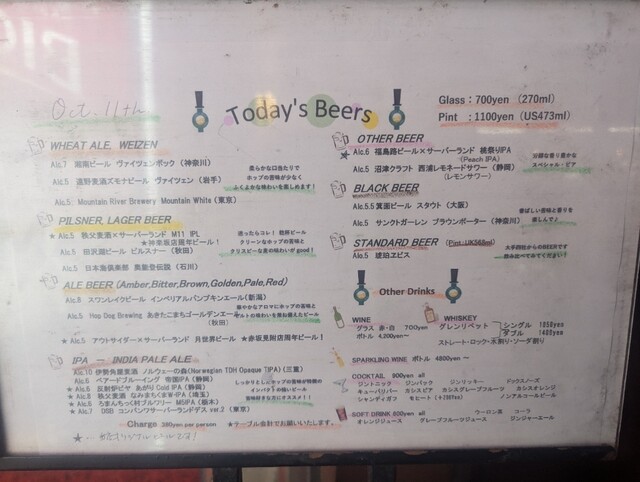 Oct. 11th
Today's Beers
Glass：700yen （270ml）
Pint ：1100yen（US473ml）
WHEAT ALE, WEIZEN
Alc.7 湘南ビール ヴァイツェンボック（神奈川）
Alc.5 遠野麦酒ズモナビール ヴァイツェン（岩手）
Alc.5: Mountain River Brewery Mountain White（東京）
柔らかな口当たりで
ホップの苦味が少なく
ふくよかな味わいを楽しめます！
PILSNER, LAGER BEER
★Alc.5 秩父麦酒×サーバーランド M11 IPL
★神楽坂店周年ビール！
Alc.5 田沢湖ビール ピルスナー（秋田）
Alc.5 日本海倶楽部 奥能登伝説（石川）
迷ったらコレ！
クリーンなホップの苦味と
クリスピーな麦の味わいがgood！
ALE BEER (Amber,Bitter,Brown,Golden,Pale,Red)
Alc.8 スワンレイクビール インペリアルパンプキンエール（新潟）
Alc.5 Hop Dog Brewing あきたこまちゴールデンエール
（秋田）
華やかなアロマにホップの苦味と
モルトの味わいを兼ね備えたビール
★Alc.5 アウトサイダー×サーバーランド 月世界ビール ★赤坂見附店周年ビール！
IPA － INDIA PALE ALE
Alc.10 伊勢角屋麦酒 ノルウェーの森(Norwegian TDH Opaque TIPA)（三重）
Alc.6 ベアードブルーイング 帝国IPA（静岡）
★Alc.6 反射炉ビヤ あがり Cold IPA（静岡）
★Alc.8 麦雑穀工房 なみまちくまW-IPA（埼玉）
★Alc.6 ろまんちっく村ブルワリー M5IPA（栃木）
★Alc.7 DSB コンパンワサーバーランドデス ver.2（東京）
しっかりとしたホップの苦味が特徴の
インパクトの強いビール
苦味好きな方にオススメ！！
Charge 380yen per person ★テーブル会計でお願いします。
OTHER BEER
Alc.6 福島路ビール×サーバーランド 桃祭りIPA
（Peach IPA）
Alc.5 沼津クラフト 西浦レモネードサワー（静岡）
（レモンサワー）
スペシャル・ビア
BLACK BEER
Alc.5.5 箕面ビール スタウト（大阪）
Alc.5 サンクトガーレン ブラウンポーター（神奈川）
香ばしい苦味と香りを
楽しんで♪
STANDARD BEER （Pint:UK568ml）
Alc.5 琥珀ヱビス
大手四社からのBEERです
飲み比べてみてください！
Other Drinks
WINE
グラス 赤・白 700yen
ボトル 4,200yen～
WHISKEY
グレンリベット
シングル 1050yen
ダブル 1400yen
ストレート・ロック・水割り・ソーダ割り
SPARKLING WINE ボトル 4800yen～
COCKTAIL 900yen all
ジントニック ジンバック ジンリッキー ドッグズノーズ
キューバリバー カシスビア カシスグレープフルーツ カシスオレンジ
シャンディガフ モヒート（+200yen） ノンアルコールビール
SOFT DRINK 500yen all
ウーロン茶 コーラ
オレンジジュース グレープフルーツジュース ジンジャーエール